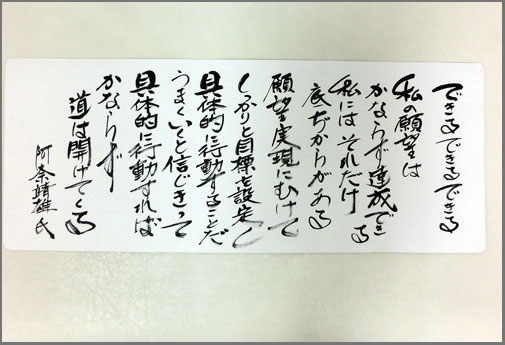 できるできるできる
私の願望は
かならず達成できる
私にはそれだけ
底ぢからがある
願望実現にむけて
しっかりと目標を設定し
具体的に行動することだ
うまくいくと信じきって
具体的に行動すれば
かならず
道は開けてくる
阿奈靖雄氏